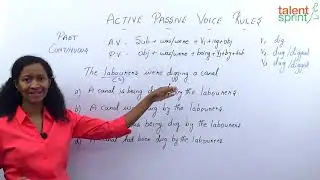 talent
sprint
ACTIVE PASSIVE VOICE RULES
PAST
CONTINUOUS
A.V - Sub + was/were + V₁ + ing + obj
P.V - obj + was/were + being + V₃ + by + sub
V₁ dig
V₂ dug/digged
V₃ dug/digged
The labourers were digging a canal
a) A canal is being dug by the labourers
b) A canal was dug by the labourers
being dug by the labourers
been dug by the labourers